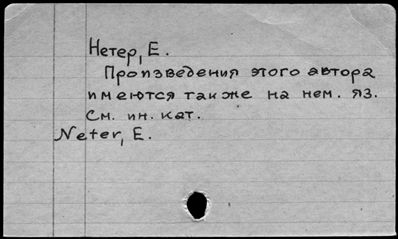 Нетер, Е.
Произведения этого автора
имеются также на нем. яз.
См. ин. кат.
Neter, E.